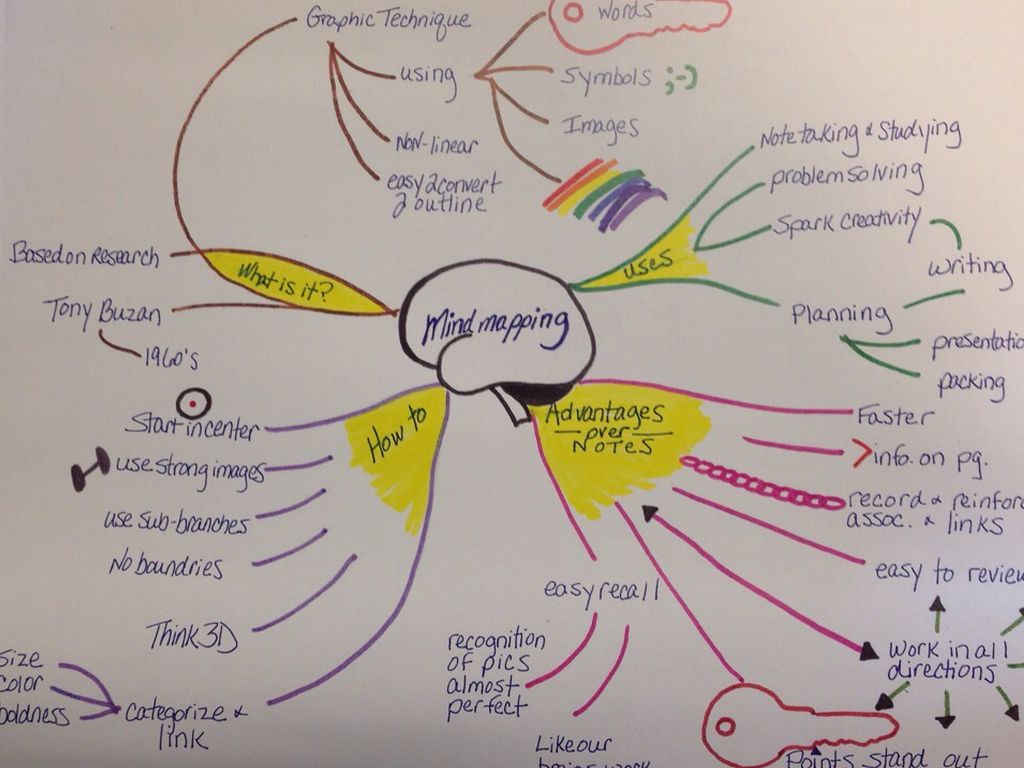 Graphic Technique
using
Words
Symbols ;-)
Images
Non-linear
easy 2 convert
2 outline
What is it?
Based on Research
Tony Buzan
1960's
Mind mapping
uses
Note taking & Studying
problem solving
Spark Creativity
writing
Planning
presentatio
packing
How to
Start in center
use strong images
use sub-branches
No boundries
Think 3D
Categorize &
link
Size
color
boldness
Advantages
over
NOTES
Faster
> info. on pg.
record & reinfor
assoc. & links
easy to review
work in all
directions
Points stand out
easy recall
recognition
of pics
almost
perfect
Like our
brains work